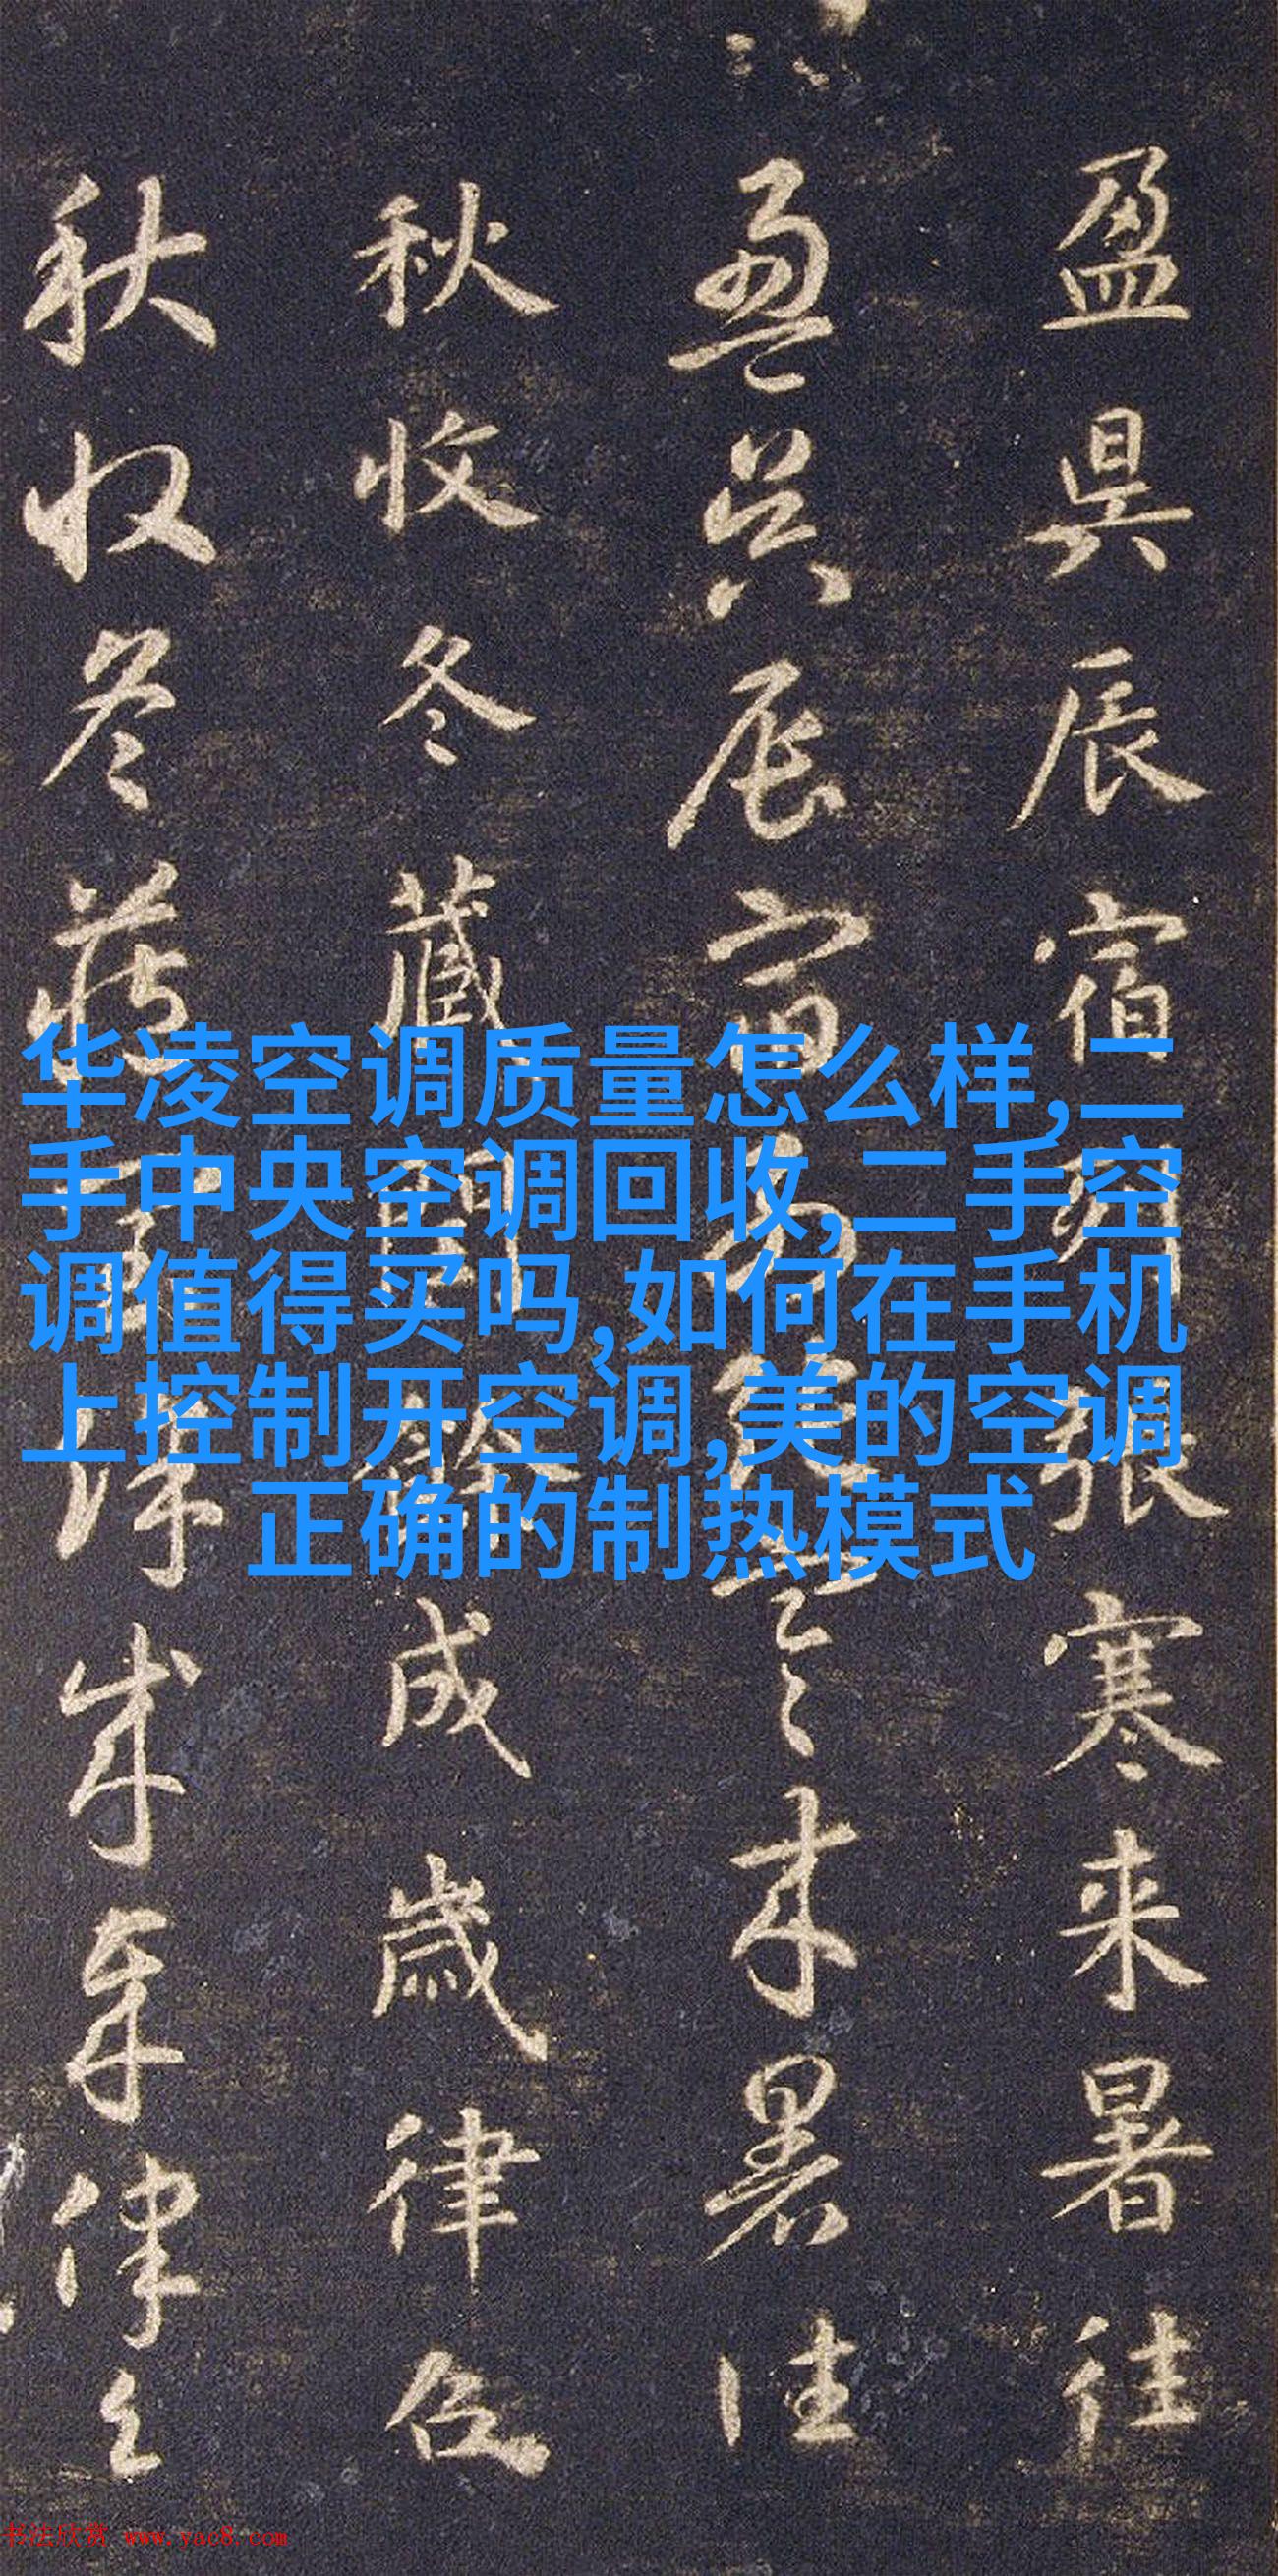 盈昃辰宿列張寒来暑往
盈昃辰宿列張寒来暑往
秋收冬藏閏餘成歲律召
秋收冬藏閏餘成歲律召
华凌空调质量怎么样,二
手中央空调回收,二手空
调值得买吗,如何在手机
上控制开空调,美的空调
正确的制热模式
书法欣赏 www.yac8.com